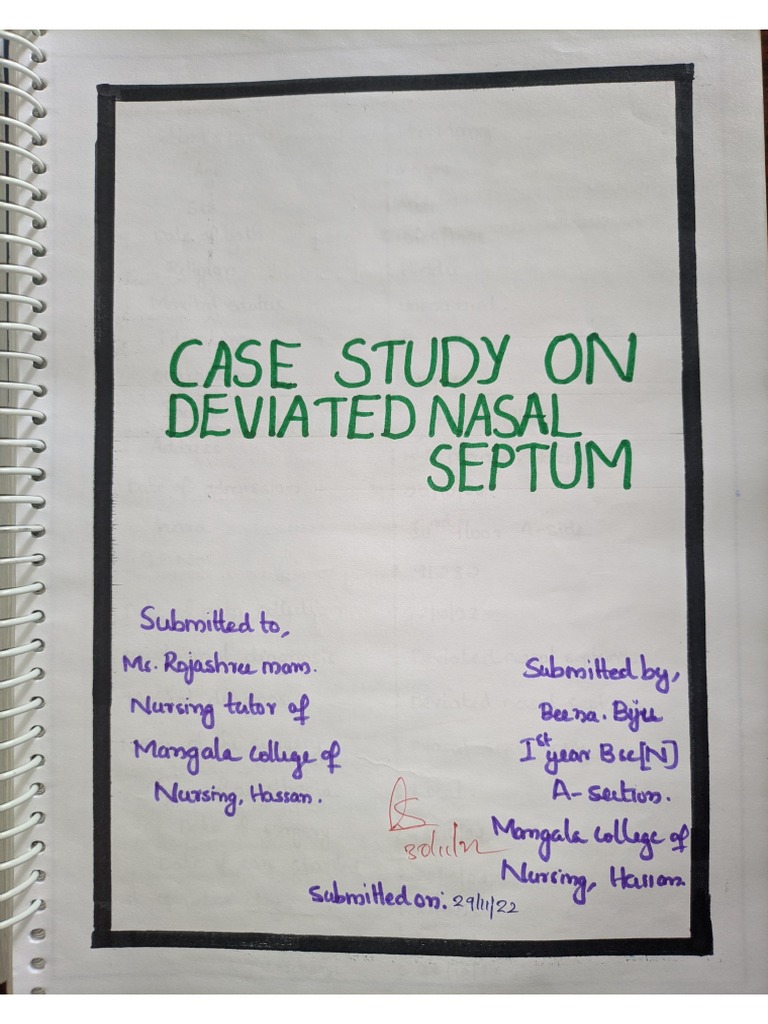 CASE STUDY ON
DEVIATED NASAL
SEPTUM
Submitted to,
Ms. Rajashree mam.
Nursing tutor of
Mangala college of
Nursing, Hassan.
Submitted by,
Beena. Biju
Ist year Bsc[N]
A-section.
Mangala college of
Nursing, Hassan
30/11/22
Submitted on: 29/11/22